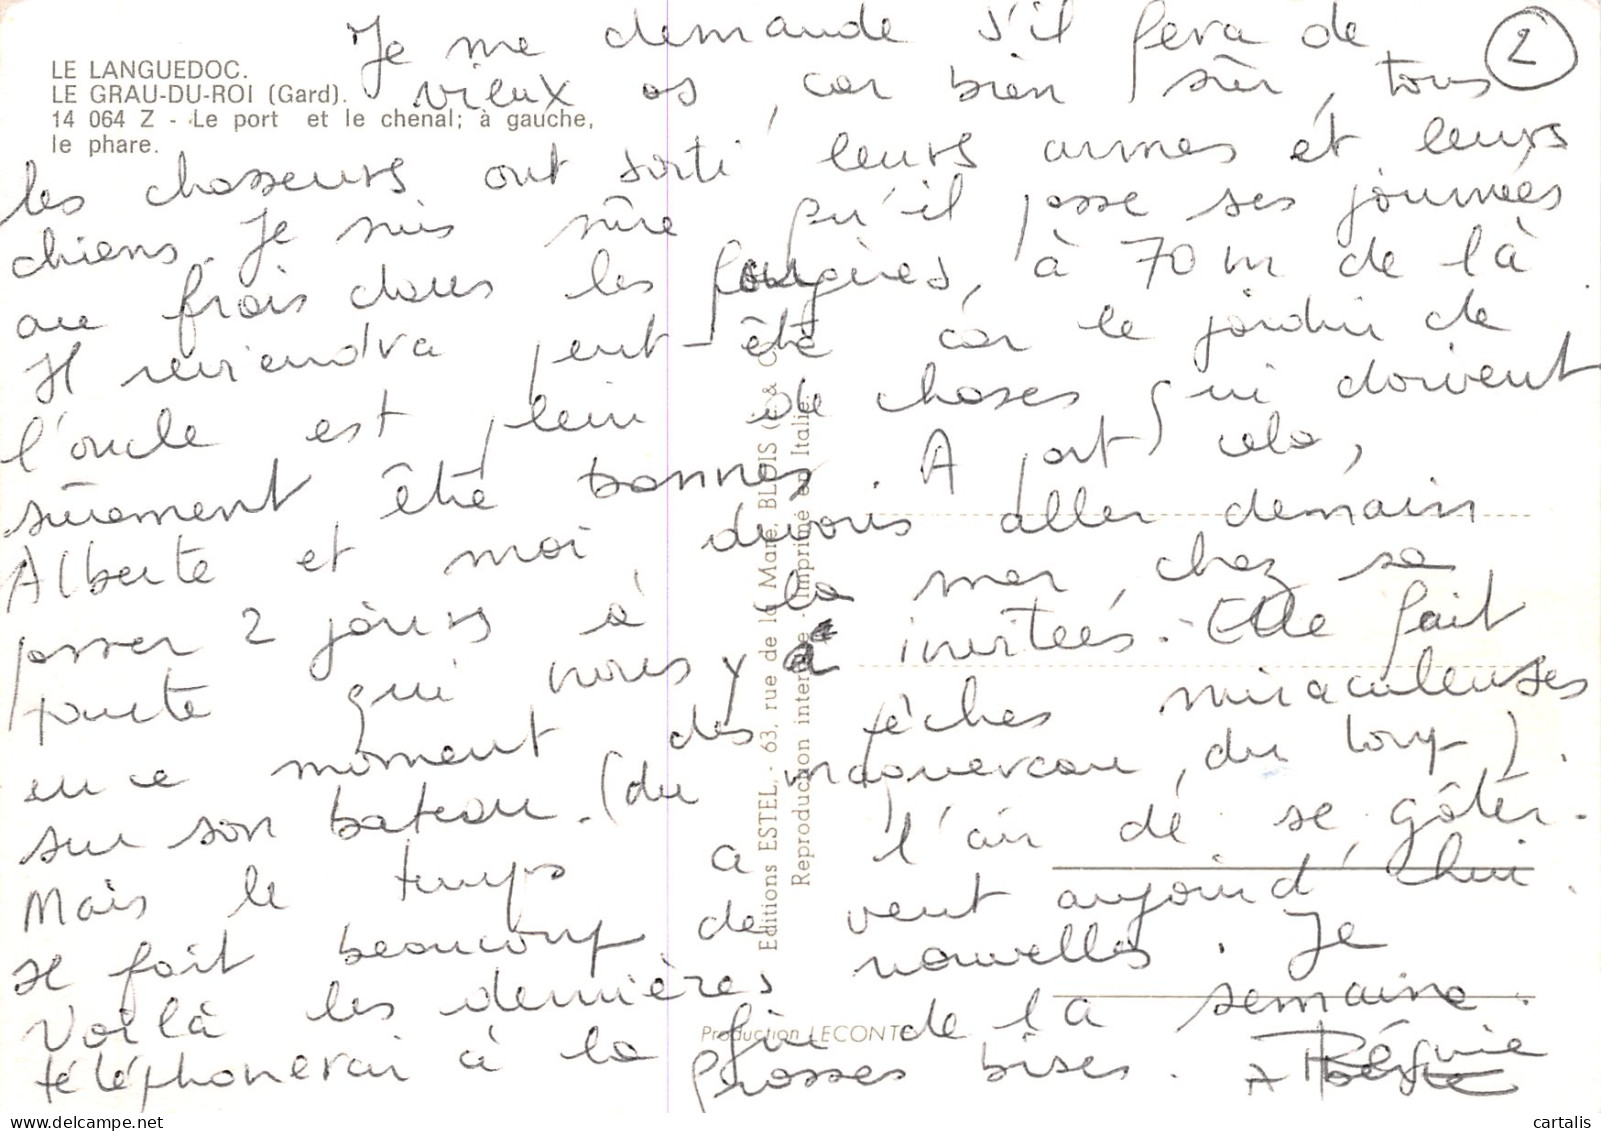 LE LANGUEDOC.
LE GRAU-DU-ROI (Gard).
14 064 Z - Le port et le chenal; à gauche,
le phare.
2
Je me demande s'il fera de
vieux os, car bien sûr, tous
les chasseurs ont sorti leurs armes et leurs
chiens. Je suis sûre qu'il passe ses journées
au frais dans les fougères, à 70 m de là
Il reviendra peut-être car le jardin de
l'oncle est plein de choses qui doivent
sûrement être bonnes. A part cela,
Alberte et moi, devons aller demain
passer 2 jours à la mer, chez sa
qui nous y a invitées. Elle fait
en ce moment des pêches miraculeuses
sur son bateau. (du maquereau, du loup).
Mais le temps a l'air de se gâter.
Il fait beaucoup de vent aujourd'hui.
Voilà les dernières nouvelles. Je
téléphonerai à la fin de la semaine.
Grosses bises.
Editions ESTEL, - 63, rue de la Mare, BLOIS (L. & C.)
Reproduction interdite - Imprimé en Italie
Production LECONTE
cartalis